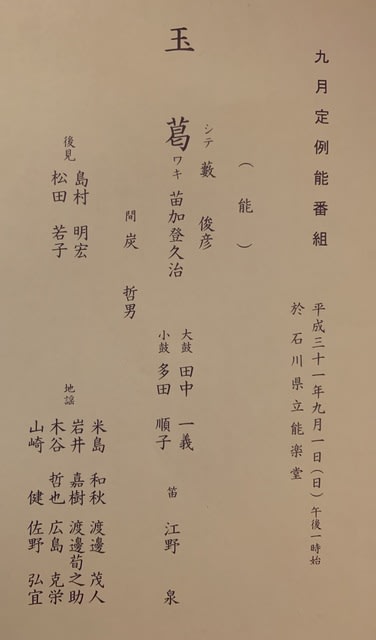 九月定例能番組
平成三十一年九月一日(日)午後一時始
於 石川県立能楽堂
(能)
玉葛
シテ 藪 俊彦
ワキ 苗加登久治
間 炭 哲男
大鼓 田中 一義
小鼓 多田 順子
笛 江野 泉
後見 島村 明宏
松田 若子
地謡
米島 和秋 渡邊 茂人
岩井 嘉樹 渡邊荀之助
木谷 哲也 広島 克栄
山崎 健 佐野 弘宜